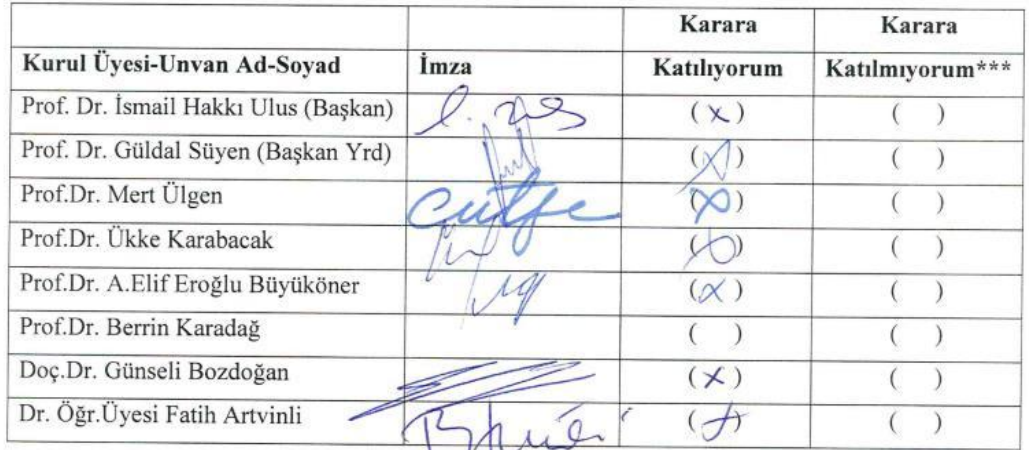 Karara Karara
Kurul Üyesi-Unvan Ad-Soyad İmza Katılıyorum Katılmıyorum***
Prof. Dr. İsmail Hakkı Ulus (Başkan) (x) ( )
Prof. Dr. Güldal Süyen (Başkan Yrd) (x) ( )
Prof.Dr. Mert Ülgen (x) ( )
Prof.Dr. Ükke Karabacak (x) ( )
Prof.Dr. A.Elif Eroğlu Büyüköner (x) ( )
Prof.Dr. Berrin Karadağ ( ) ( )
Doç.Dr. Günseli Bozdoğan (x) ( )
Dr. Öğr.Üyesi Fatih Artvinli (x) ( )